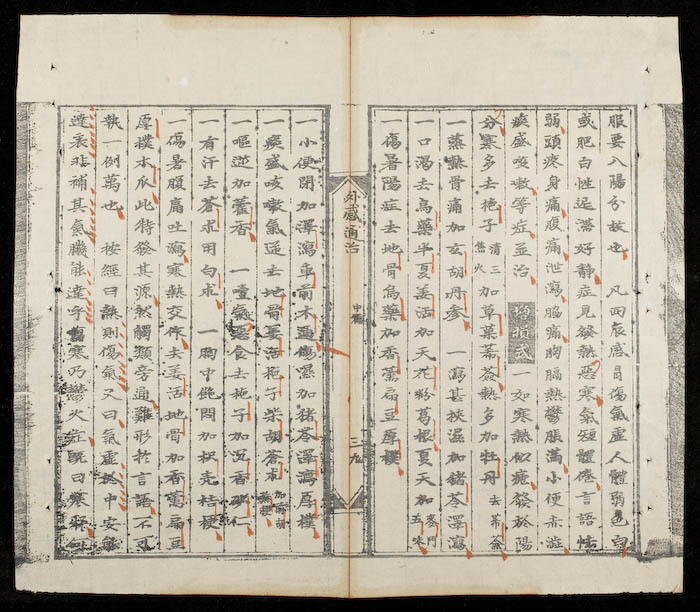 服要入陽分故也　凡西衣感冒傷氣虛人體弱色白
或肥白性延蕩好靜症見發熱惡寒氣短體倦言語怯
弱頭疼身痛腹痛泄瀉脇痛胸膈熱鬱脹滿小便赤澁
痰盛咳嗽等症並治　損式　一如寒熱似瘧發於陽
分寒多去梔子清三焦火加草菓蒼熱多加牡丹去
一蒸熱骨痛加玄胡丹參　一瀉甚挾濕加猪苓澤瀉
一口渴去烏藥半夏羌活加天花粉葛根夏天加麥門五味
一傷暑陽症去地骨烏藥加香薷扁豆厚樸
外感通治
中
三九
一小便閉加澤瀉車前木通傷濕加猪苓澤瀉厚樸
一痰盛咳嗽氣逆去地骨羌活梔子柴胡蒼朮加
一嘔逆加藿香　一噎氣惡食去梔子加沉香砂仁
一有汗去蒼朮用白朮　一胸中飽悶加枳壳桔梗
一傷暑腹痛吐瀉寒熱交作去羌活地骨加香薷扁豆
厚樸木瓜此特發其源然觸類旁通難形於言語不可
執一例萬也　按經曰熱則傷氣又曰氣虛於中安能
達表非補其氣機能達乎寒乃鬱火症既曰寒